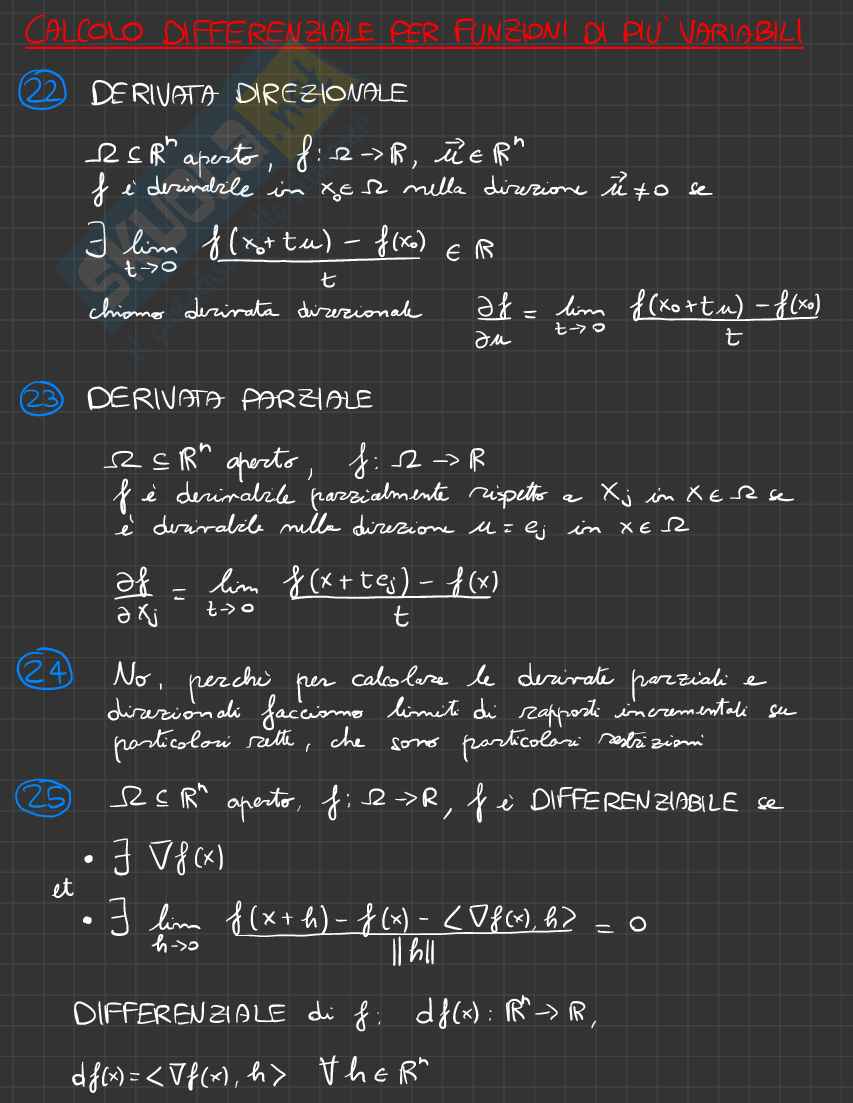 CALCOLO DIFFERENZIALE PER FUNZIONI DI PIU' VARIABILI
22 DERIVATA DIREZIONALE
Ω ⊆ ℝⁿ aperto, f: Ω → ℝ, u⃗ ∈ ℝⁿ
f è derivabile in x₀ ∈ Ω nella direzione u⃗ ≠ 0 se
∃ lim t→0 (f(x₀+tu) - f(x₀))/t ∈ ℝ
chiamo derivata direzionale ∂f/∂u = lim t→0 (f(x₀+tu) - f(x₀))/t
23 DERIVATA PARZIALE
Ω ⊆ ℝⁿ aperto, f: Ω → ℝ
f è derivabile parzialmente rispetto a xⱼ in x ∈ Ω se
è derivabile nella direzione u = eⱼ in x ∈ Ω
∂f/∂xⱼ = lim t→0 (f(x+teⱼ) - f(x))/t
24 No, perchè per calcolare le derivate parziali e
direzionali facciamo limiti di rapporti incrementali su
particolari rette, che sono particolari restrizioni
25 Ω ⊆ ℝⁿ aperto, f: Ω → ℝ, f è DIFFERENZIABILE se
• ∃ ∇f(x)
et
• ∃ lim h→0 (f(x+h) - f(x) - <∇f(x), h>)/||h|| = 0
DIFFERENZIALE di f: df(x): ℝⁿ → ℝ,
df(x) = <∇f(x), h> ∀ h ∈ ℝⁿ
SKUOLA.net